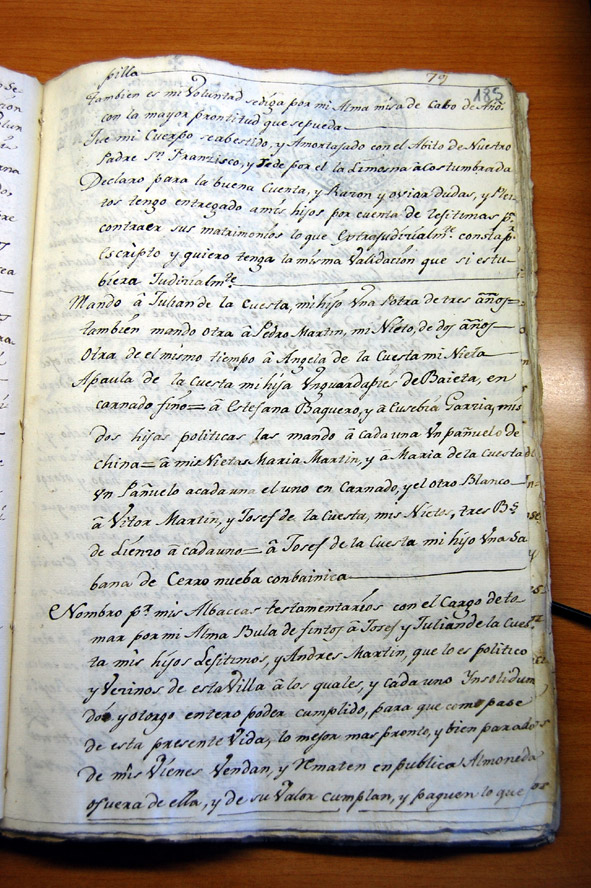 pilla
79
185
tambien es mi Voluntad sediga por mi Alma misa de Cabo de Año
con la mayor prontitud que sepueda
Que mi Cuerpo seabestido, y Amortajado con el Abito de Nuestro
Padre Sn. Franzisco, y sede por el la Limosna acostumbrada
Declaro para la buena Cuenta, y Razon y oviar dudas, y Plei-
tos tengo entregado amis hijos por cuenta de lesitimas pa.
contraer sus matrimonios lo que Extrajudizialmte. consta pr.
Escripto y quiero tenga la misma validacion que si estu-
biera Judizialmte.
Mando â Julian de la Cuesta, mi hijo Vna Potra de tres años=
tambien mando otra â Pedro Martin, mi Nieto, de dos años
Otra de el mismo tiempo â Angela de la Cuesta mi Nieta
Apaula de la Cuesta mi hija Vn guardapies de Baieta, en
carnado fino= â Estefana Baquero, y â Eusebia Garzia, mis
dos hijas politicas las mando â cada una Vn pañuelo de
china= â mis Nietas Maria Martin, y â Maria de la Cuesta
Vn Pañuelo acada una el uno en Carnado, y el otro Blanco
â Vitor Martin, y Josef de la Cuesta, mis Nietos, tres Bs.
de Lienzo â cada uno= â Josef de la Cuesta mi hijo Vna Sa
bana de Cerro nueba conbainica
Nombro pr. mis Albaceas testamentarios con el Cargo de to
mar por mi Alma Bula de fintos â Josef y Julian de la Cues
ta mis hijos Lesitimos, y Andres Martin, que lo es politico
y Vezinos de esta Villa â los quales, y cada uno Ynsolidum
doi y otorgo entero poder cumplido, para que como pase
de esta presente Vida, lo mejor mas pronto, y bien parado
de mis Vienes Vendan, y rematen en publica Almoneda
o fuera de ella, y de su Valor cumplan, y paguen lo que